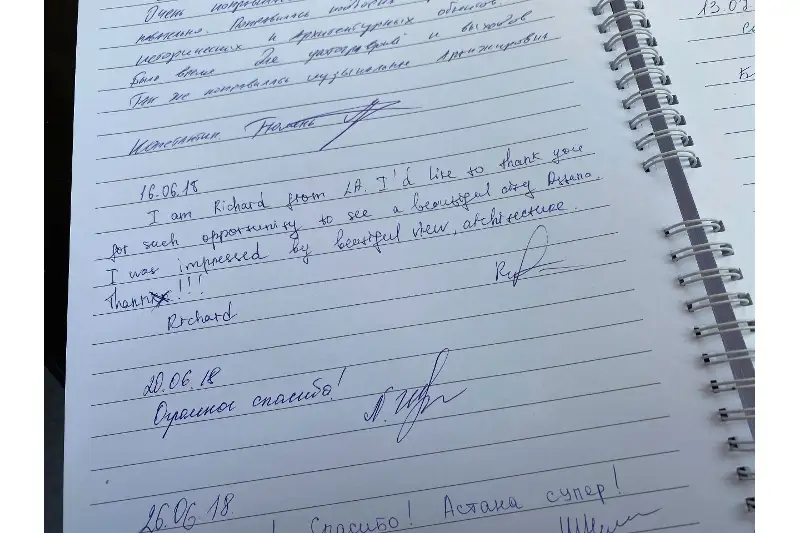 Очень понравил
исторических и архитектурных объектов.
Было время для фотографий и выходов
Так же понравилась музыкальные
Константин. Тюмень
16.06.18
I am Richard from LA. I'd like to thank you
for such opportunity to see a beautiful city Astana.
I was impressed by beatiful view, architecture.
Thank!!!
Richard
20.06.18
Огромное спасибо!
26.06.18
! Спасибо! Астана супер!
13.02